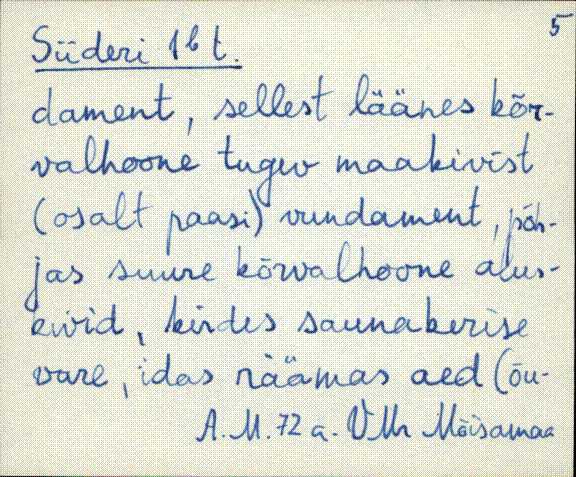 5
Siideri 1b t.
dament, sellest läänes kõr-
valhoone tugev maakivist
(osalt paasi) vundament, põh-
jas suure kõrvalhoone alus-
kivid, kirdes saunakerise
vare, idas räämas aed (õu-
A.M. 72 a. VMr Mõisamaa